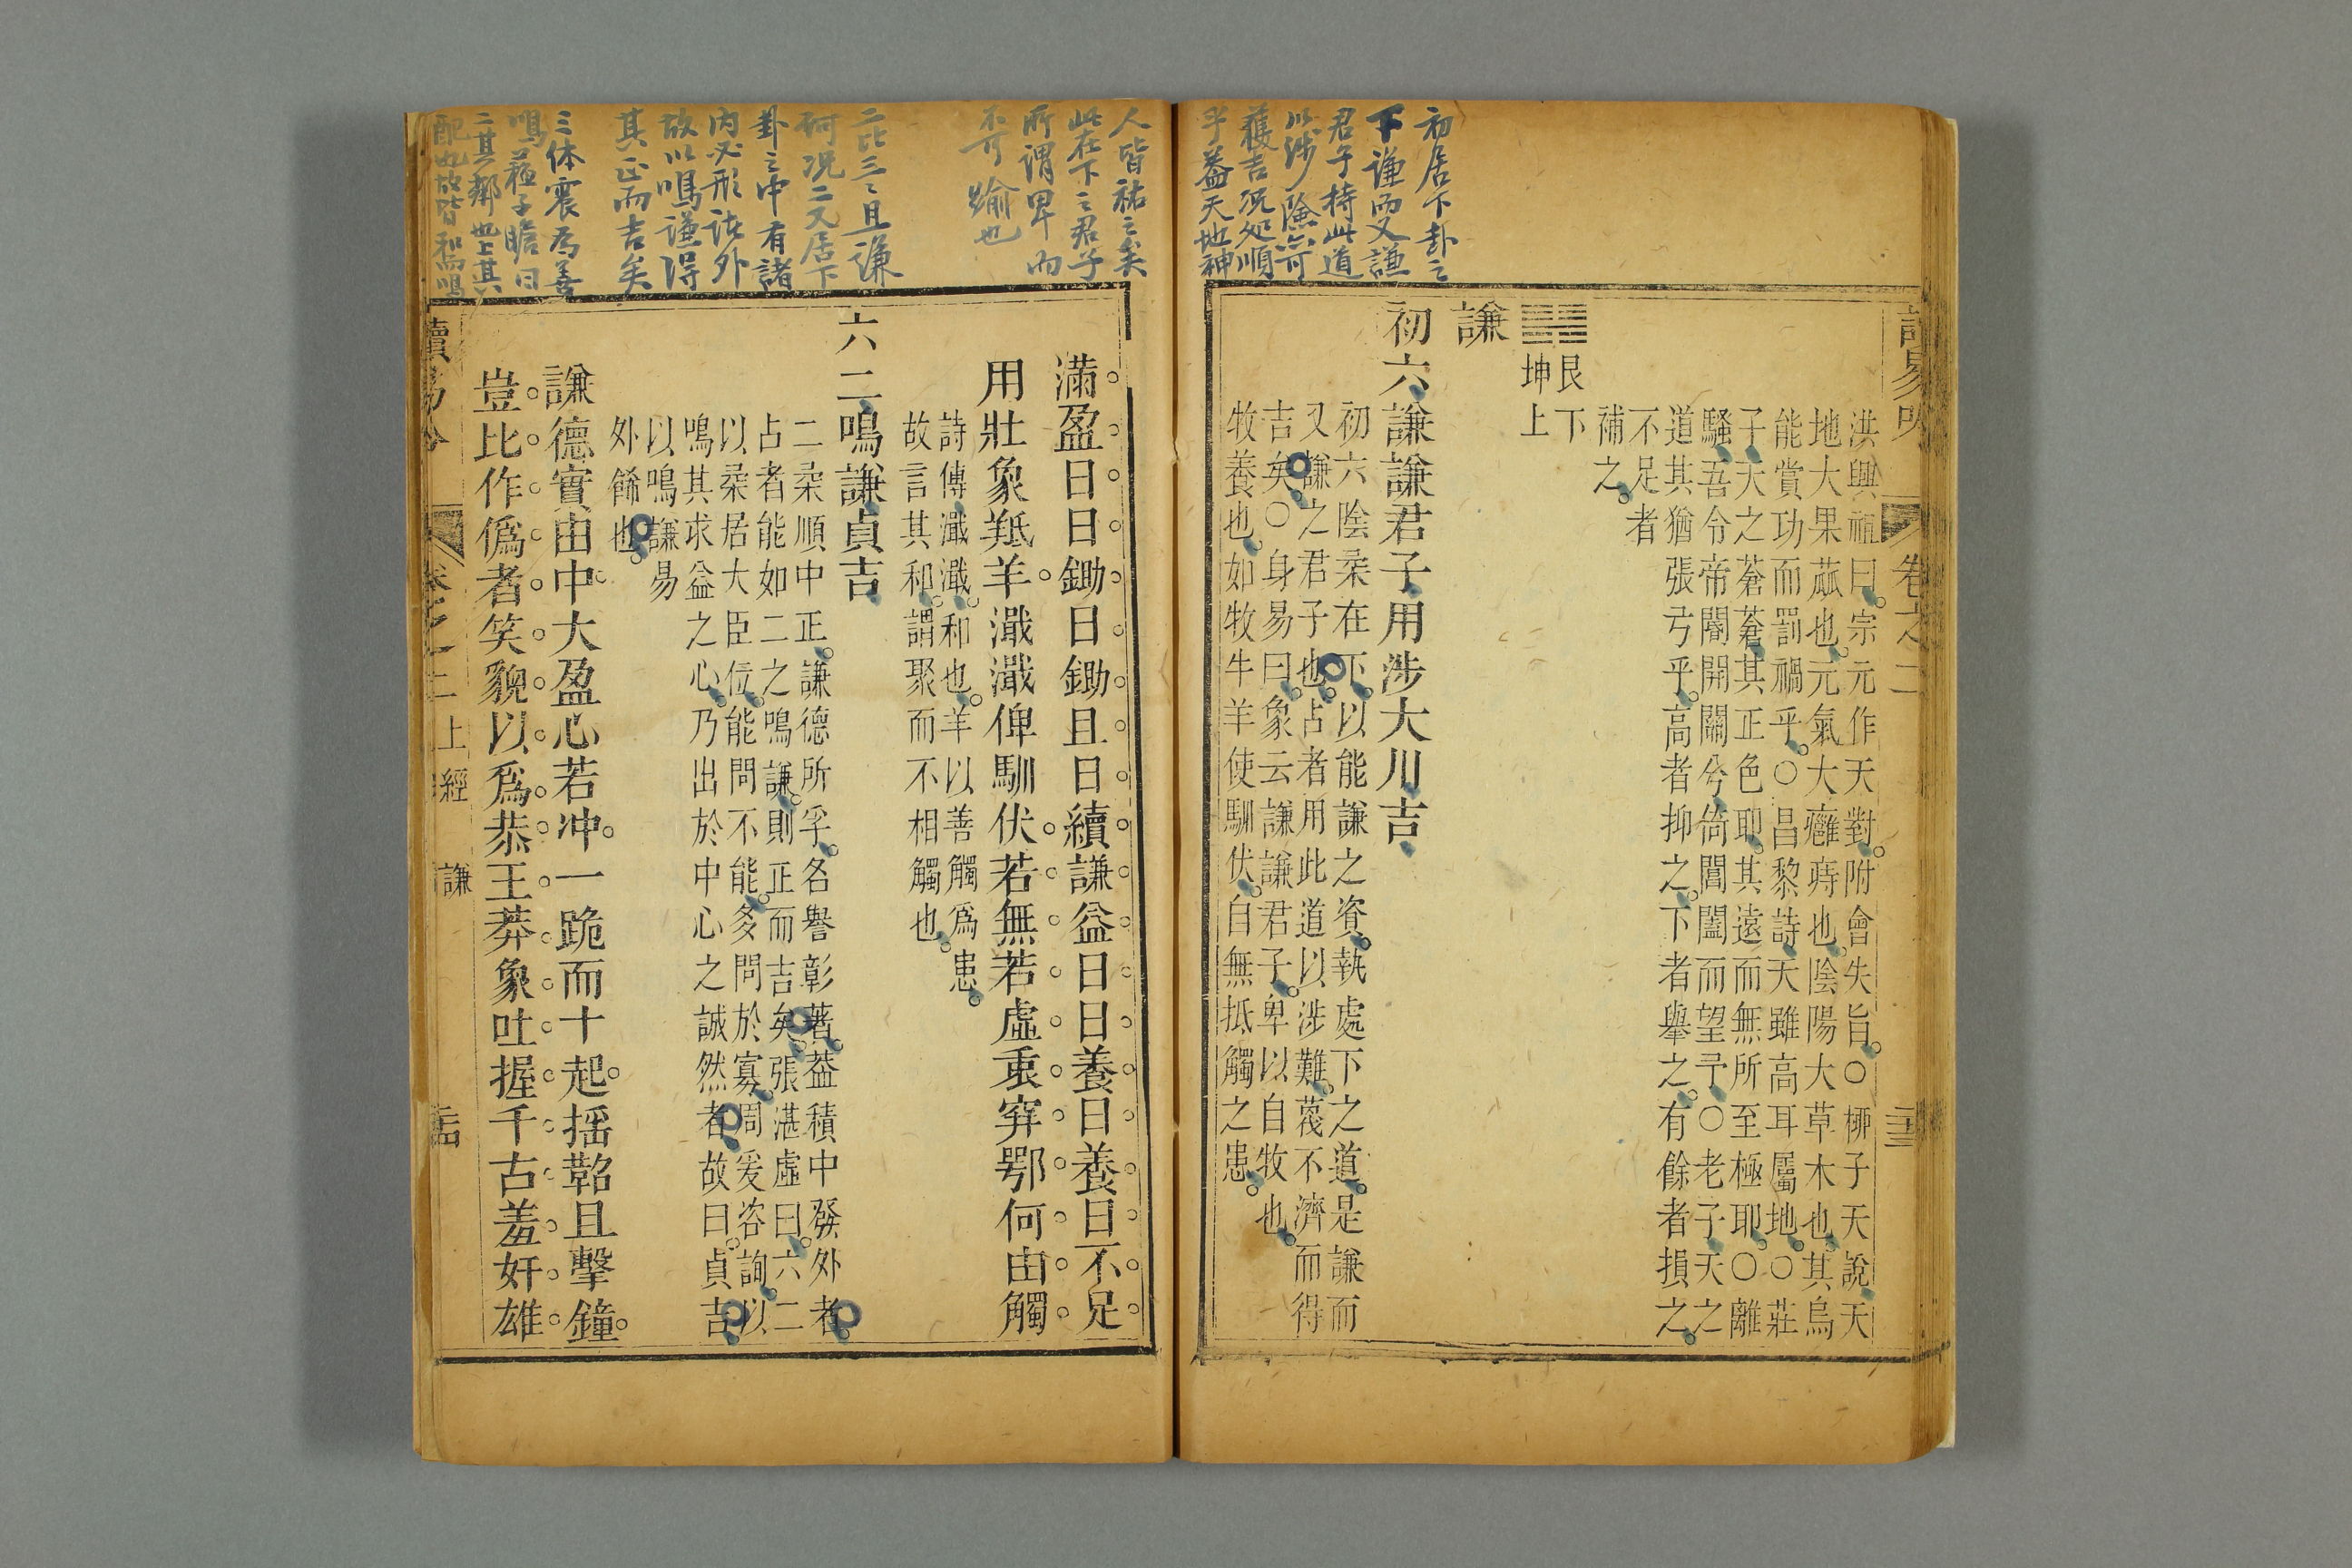 初居下卦之
下謙而又謙
君子持此道
以涉險亦可
獲吉況処順
乎葢天地神
讀易吟
卷之二
洪興祖曰宗元作天對附會失旨○栁子天說天
地大果蓏也元氣大癰痔也陰陽大草木也其烏
能賞功而罰禍乎○昌黎詩天雖高耳屬地○莊
子天之蒼蒼其正色耶其遠而無所至極耶○離
騷吾令帝閽開關兮倚閶闔而望予○老子天之
道其猶張弓乎高者抑之下者舉之有餘者損之
不足者
補之
艮下
坤上
謙
初六謙謙君子用涉大川吉
初六陰柔在下以能謙之資執處下之道是謙而
又謙之君子也占者用此道以涉難蔑不濟而得
吉矣○身易曰象云謙謙君子卑以自牧也
牧養也如牧牛羊使馴伏自無抵觸之患
人皆祐之矣
此在下之君子
所謂卑而
不可踰也
二比三三且謙
何況二又居下
卦之中有諸
內必形諸外
故以鳴謙得
其正而吉矣
三体震為善
鳴蘇子瞻曰
二其鄰也上其
配也故皆和而鳴
滿盈日日鋤日鋤且日續謙益日日養日養日不足
用壯象羝羊濈濈俾馴伏若無若虛重穽鄂何由觸
詩傳濈濈和也羊以善觸爲患
故言其和謂聚而不相觸也
六二鳴謙貞吉
二柔順中正謙德所孚名譽彰著葢積中發外者
占者能如二之鳴謙則正而吉矣張湛虛曰六二
以柔居大臣位能問不能多問於寡周爰咨詢以
鳴其求益之心乃出於中心之誠然者故曰貞吉
以鳴謙易
外餙也
謙德實由中大盈心若冲一跪而十起搖鞀且擊鐘
豈比作僞者笑貌以爲恭王莽象吐握千古羞奸雄
讀易吟
卷之二
上經
謙